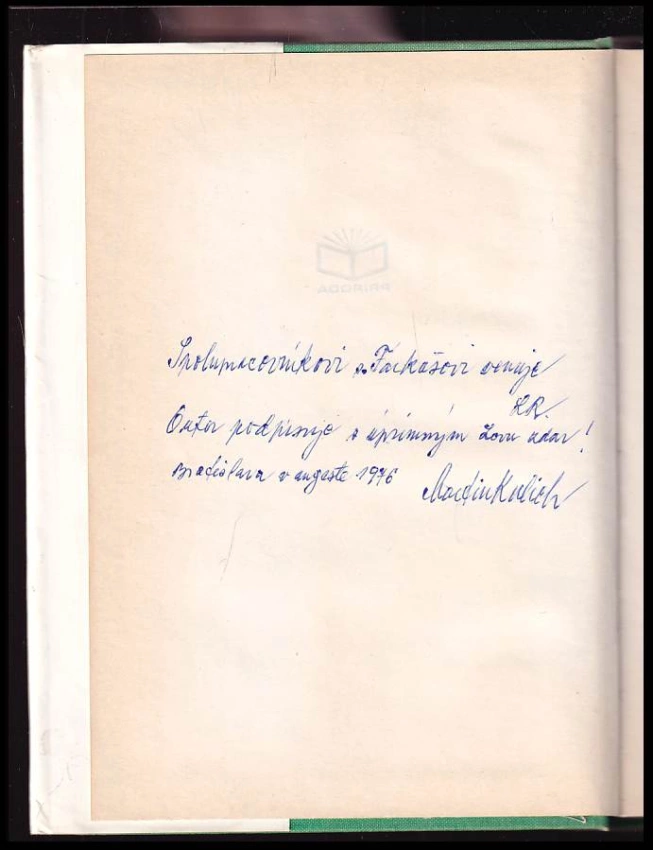 PRÍRODA
Spolupracovníkovi s. Farkašovi venuje
KR.
Autor podpisuje s úprimným Lovu zdar!
Bratislava v auguste 1976 Martin Kulich